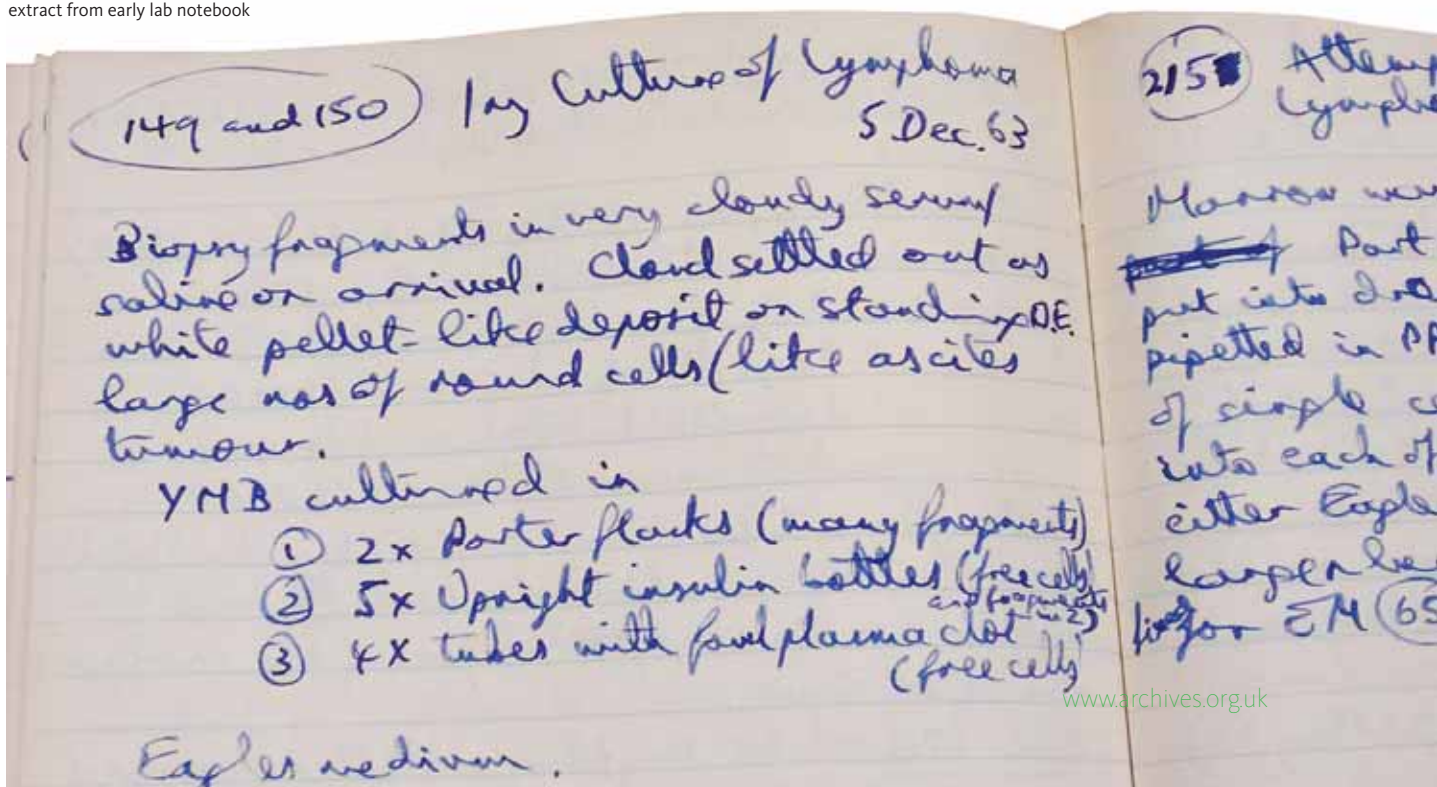 extract from early lab notebook
149 and 150 Culture of Lymphoma
5 Dec. 63
Biopsy fragments in very cloudy serum/
saline on arrival. Cloud settled out as
white pellet-like deposit on standing D.E.
large nos of round cells (like ascites
tumour.
YMB cultured in
① 2x Porter flasks (many fragments)
② 5x Upright insulin bottles (free cells
and fragments
in 2)
③ 4x tubes with fowl plasma clot
(free cells)
Eagles medium.
215
Marrow
Part
put into
pipetted in
of single
into each of
either Eagle
larger
for EM 65
www.archives.org.uk